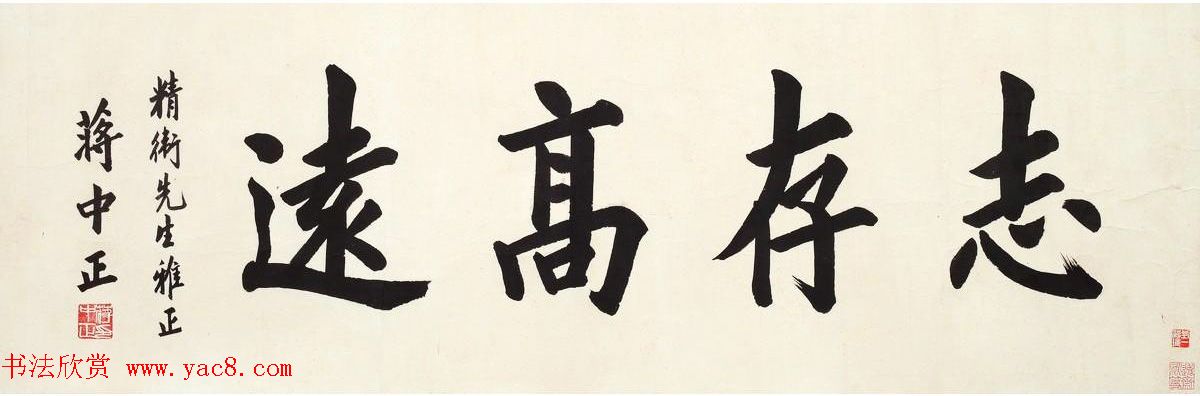 志存髙遠
精衛先生雅正
蔣中正
书法欣赏 www.yac8.com